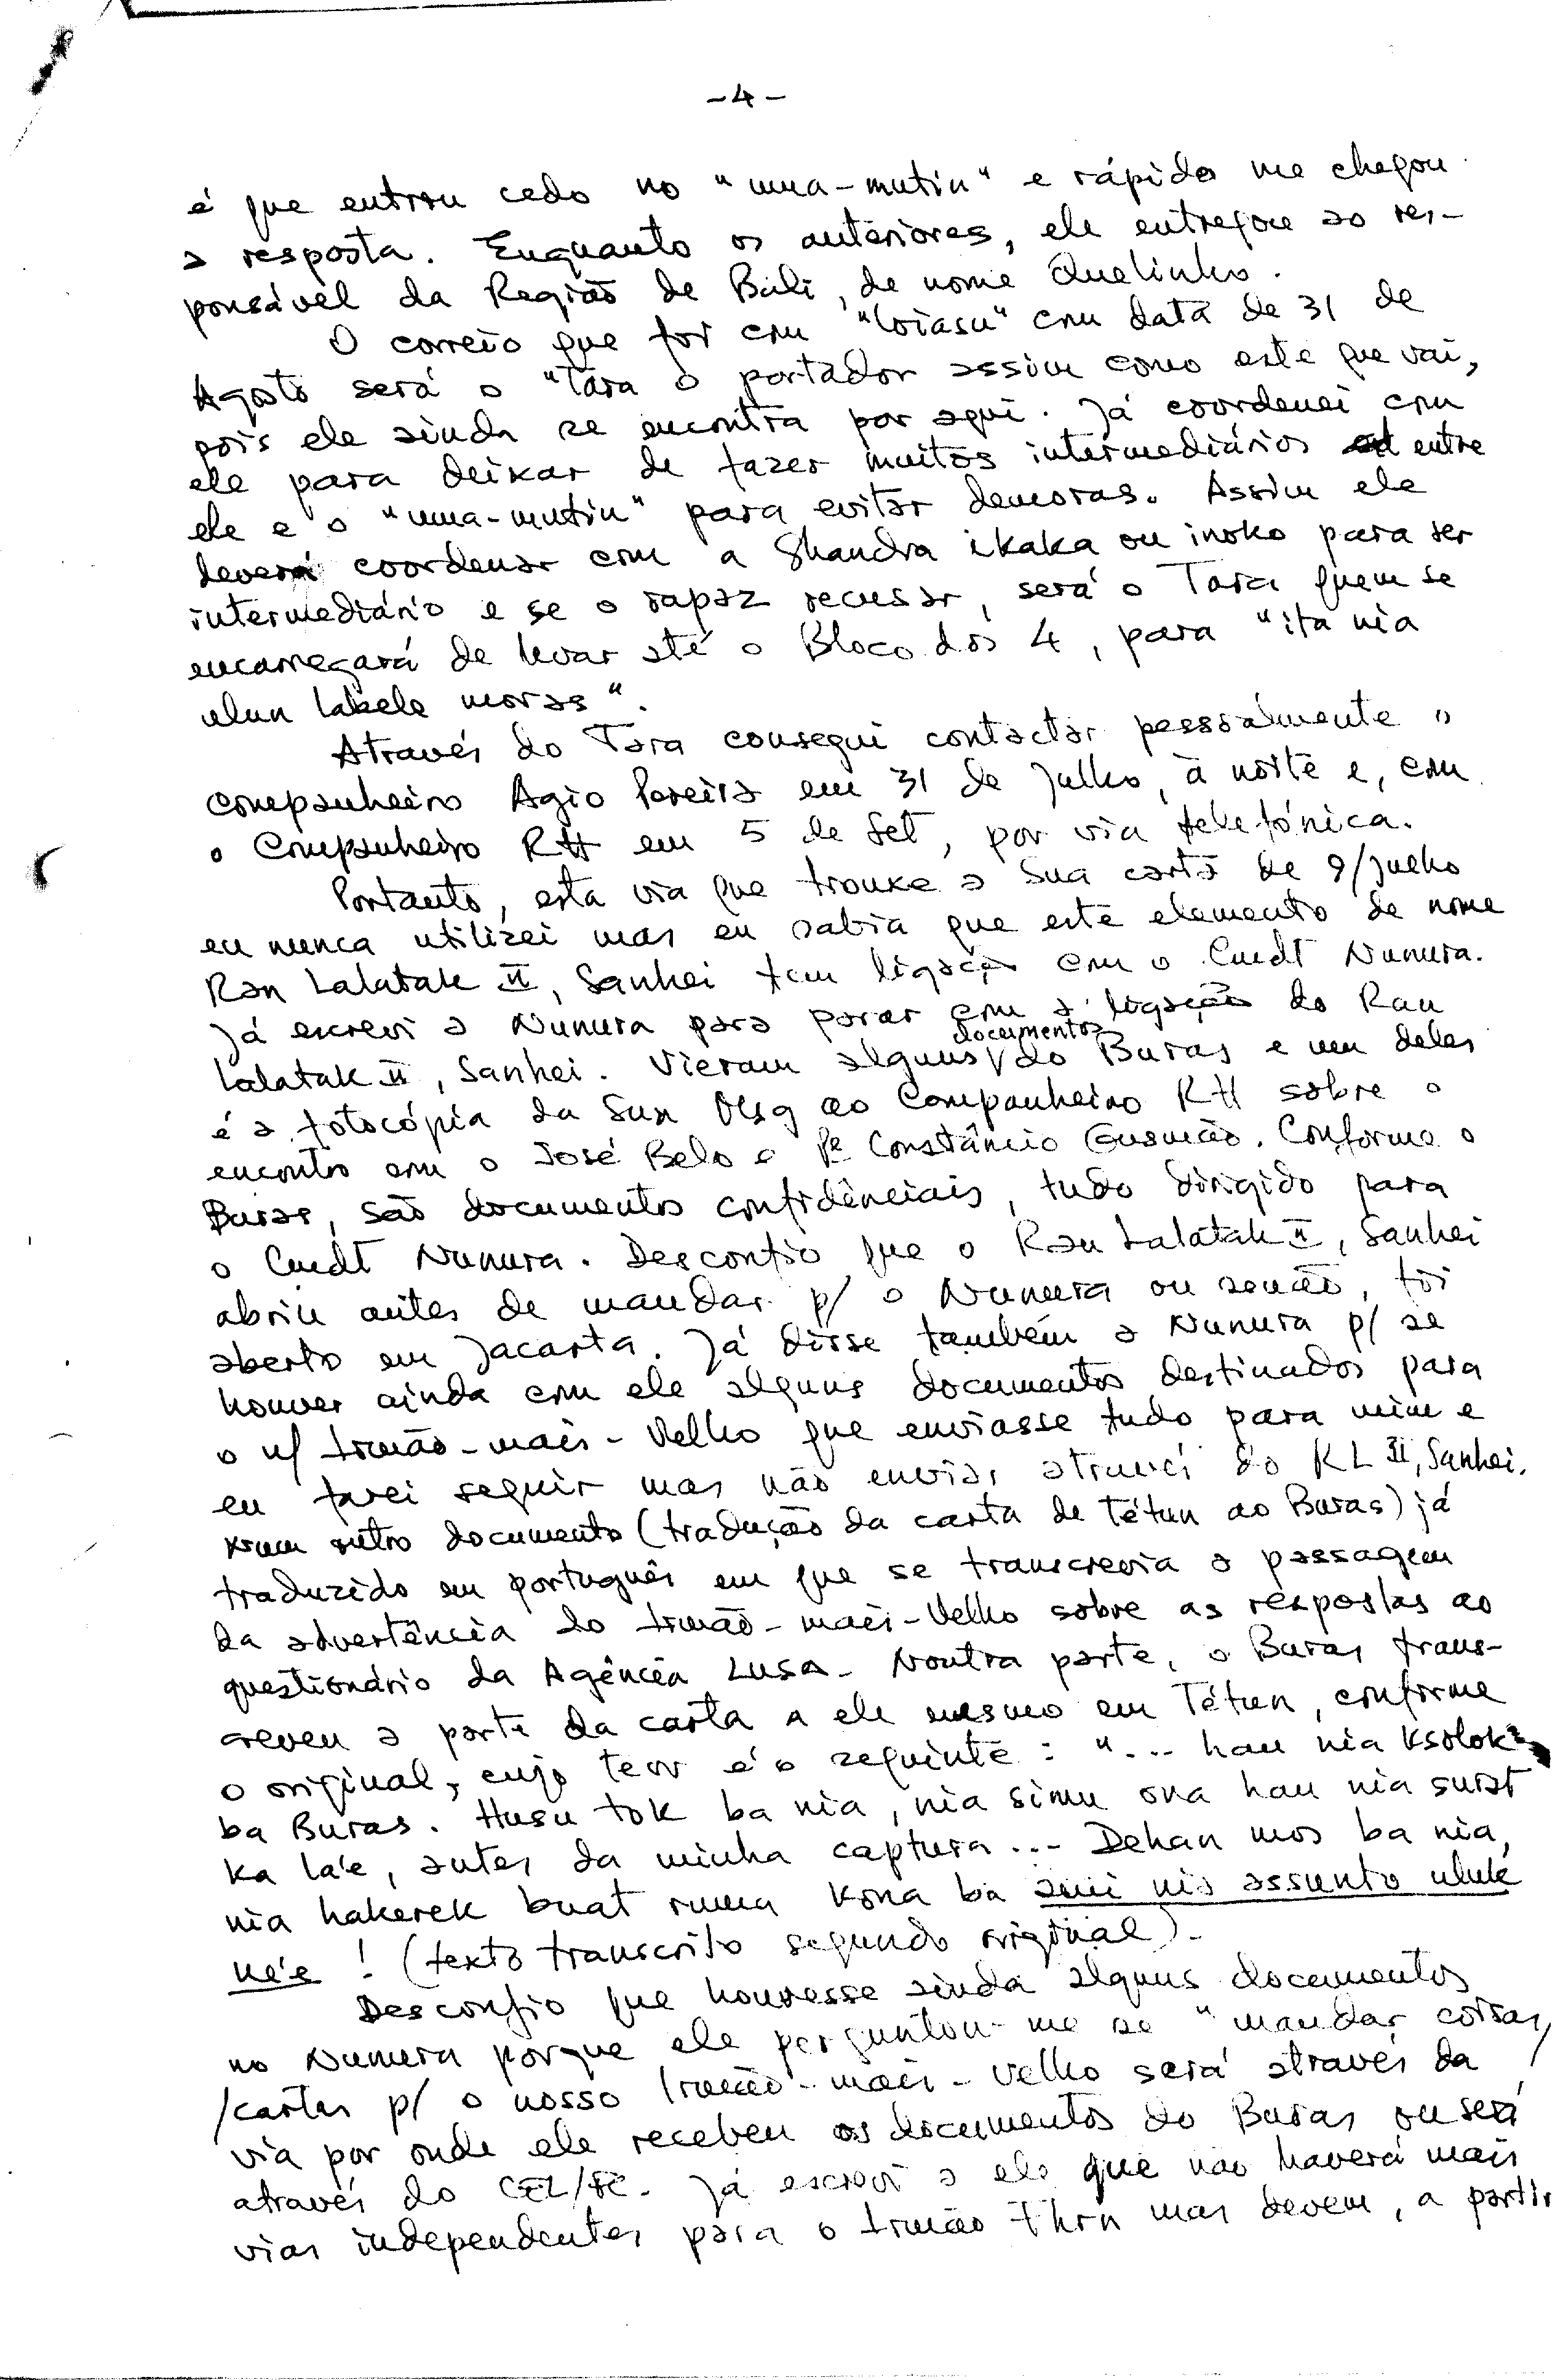 -4-
é que entrou cedo no "uma-mutin" e rápido me chegou
a resposta. Enquanto os anteriores, ele entregou ao res-
ponsável da Região de Bali, de nome Quelinho.
O correio que foi com "loiasu" com data de 31 de
Agosto será o "Tara o portador assim como este que vai,
pois ele ainda se encontra por aqui. Já coordenei com
ele para deixar de fazer muitos intermediários entre
ele e o "uma-mutin" para evitar demoras. Assim ele
deverá coordenar com a Shandra ikaka ou inoko para ser
intermediário e se o rapaz recusar, será o Tara quem se
encarregará de levar até o Bloco dos 4, para "ita nia
ulun labele moras".
Através do Tara consegui contactar pessoalmente o
companheiro Agio Pereira em 31 de Julho, à noite e, com
o Companheiro RH em 5 de Set, por via telefónica.
Portanto, esta via que trouxe a Sua carta de 9/Julho
eu nunca utilizei mas eu sabia que este elemento de nome
Ran Lalatak II, Sanhei tem ligação com o Cmdt Nunura.
Já escrevi a Nunura para parar com a ligação do Ran
Lalatak II, Sanhei. Vieram alguns documentos do Buras e um deles
é a fotocópia da Sua Msg ao Companheiro RH sobre o
encontro com o José Belo e Pe Constâncio Gusmão. Conforme o
Buras, são documentos confidênciais, tudo dirigido para
o Cmdt Nunura. Desconfio que o Ran Lalatak II, Sanhei
abriu antes de mandar p/ o Nunura ou senão, foi
aberto em Jacarta. Já disse também a Nunura p/ se
houver ainda com ele alguns documentos destinados para
o n/ Irmão-mais-Velho que enviasse tudo para mim e
eu farei seguir mas não enviar através do RL II, Sanhei.
Num outro documento (tradução da carta de Tétun ao Buras) já
traduzido em português em que se transcrevia a passagem
da advertência do Irmão-mais-Velho sobre as respostas ao
questionário da Agência Lusa. Noutra parte, o Buras trans-
creveu a parte da carta a ele mesmo em Tétun, conforme
o original, cujo teor é o seguinte: "... hau nia ksolok
ba Buras. Husu tok ba nia, nia simu ona hau nia surat
ka la'e, antes da minha captura... Dehan mos ba nia,
nia hakerek buat ruma kona ba ami nia assunto uluk
ne'e! (texto transcrito segundo original).
Desconfio que houvesse ainda alguns documentos
no Nunura porque ele perguntou-me se "mandar coisas/
/cartas p/ o nosso Irmão-mais-Velho será através da
via por onde ele recebeu os documentos do Buras ou será
através do CEL/FC. Já escrevi a ele que não haverá mais
vias independentes para o Irmão mas devem, a partir